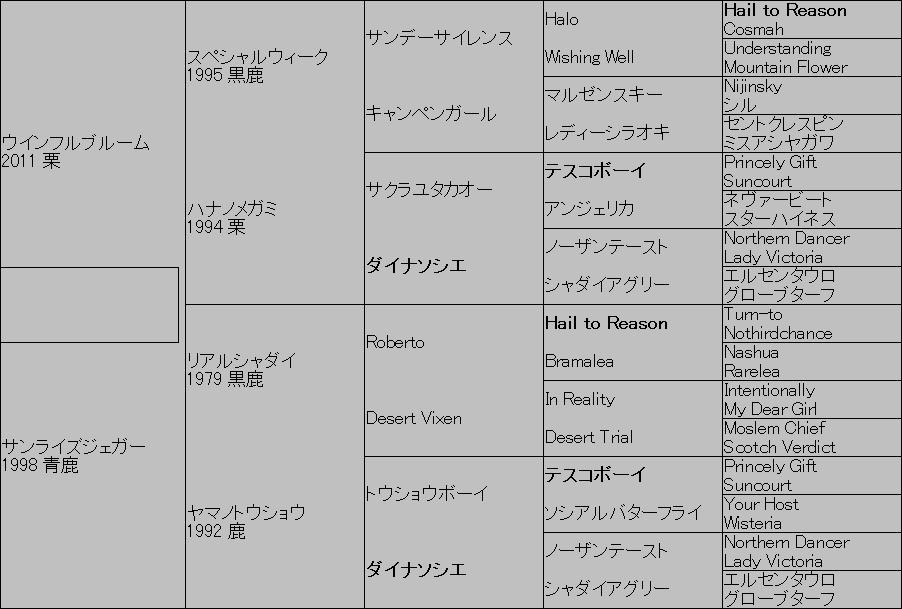 ウインフルブルーム
2011 栗
スペシャルウィーク
1995 黒鹿
サンデーサイレンス
Halo
Hail to Reason
Cosmah
Wishing Well
Understanding
Mountain Flower
キャンペンガール
マルゼンスキー
Nijinsky
シル
レディーシラオキ
セントクレスピン
ミスアシヤガワ
ハナノメガミ
1994 栗
サクラユタカオー
テスコボーイ
Princely Gift
Suncourt
アンジェリカ
ネヴァービート
スターハイネス
ダイナソシエ
ノーザンテースト
Northern Dancer
Lady Victoria
シャダイアグリー
エルセンタウロ
グローブターフ
サンライズジェガー
1998 青鹿
リアルシャダイ
1979 黒鹿
Roberto
Hail to Reason
Turn-to
Nothirdchance
Bramalea
Nashua
Rarelea
Desert Vixen
In Reality
Intentionally
My Dear Girl
Desert Trial
Moslem Chief
Scotch Verdict
ヤマノトウショウ
1992 鹿
トウショウボーイ
テスコボーイ
Princely Gift
Suncourt
ソシアルバターフライ
Your Host
Wisteria
ダイナソシエ
ノーザンテースト
Northern Dancer
Lady Victoria
シャダイアグリー
エルセンタウロ
グローブターフ